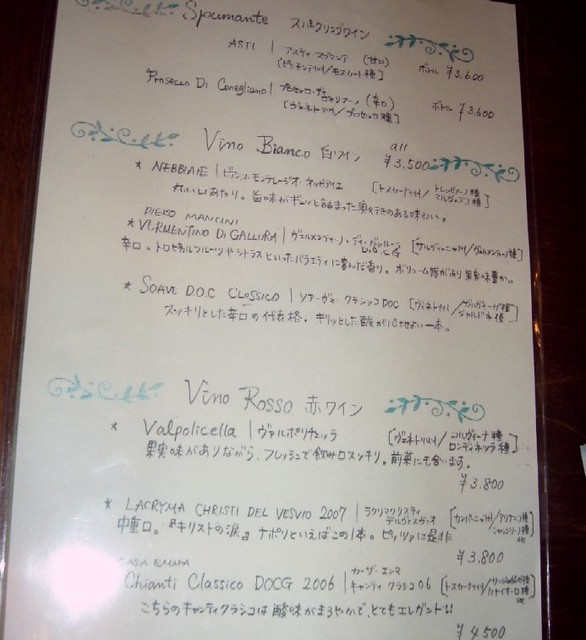 Spumante スパークリングワイン
ASTI | アスティ スプマンテ (甘口) ボトル ¥3,600
[ピエモンテ州/モスカート種]
Prosecco Di Conegliano | プロセッコ・ディ コネリアーノ (辛口) ボトル ¥3,600
[ヴェネト州/プロセッコ種]
Vino Bianco 白ワイン all ¥3,500
* NEBBIAIE | ビアンコ・モンテレージオ・ネッビアイエ [トスカーナ州/トレッビアーノ種 マルヴァジア種]
丸い口あたり。旨味がギュッと詰まった奥行きのある味わい。
PIERO MANCINI
* VERMENTINO DI GALLURA | ヴェルメンティーノ・ディ・ガッルーラ D.O.C.G [サルディーニャ州/ヴェルメンティーノ種]
辛口。トロピカルフルーツやシトラスといったバラエティに富んだ香り。ボリューム感があり果実味豊か。
* SOAVE D.O.C CLASSICO | ソアーヴェ クラシッコ DOC [ヴェネト州/ガルガネーガ種 シャルドネ種]
スッキリとした辛口の代表格。キリッとした酸が心地よい一本。
Vino Rosso 赤ワイン
* Valpolicella | ヴァルポリチェッラ [ヴェネト州/コルヴィーナ種 ロンディネッラ種]
果実味がありながら、フレッシュで飲み口スッキリ。前菜にも合います。
¥3,800
* LACRYMA CHRISTI DEL VESVIO 2007 | ラクリマクリスティ デルヴェスヴィオ [カンパーニャ州/アリアニコ種
中重口。『キリストの涙』ナポリといえばこの1本。ピッツァに是非
¥3,800
CASA EMMA カーザ・エンマ
Chianti Classico DOCG 2006 | キャンティ・クラシコ06 [トスカーナ州/
こちらのキャンティクラシコは酸味がまろやかで、とてもエレガント!!
¥4,500